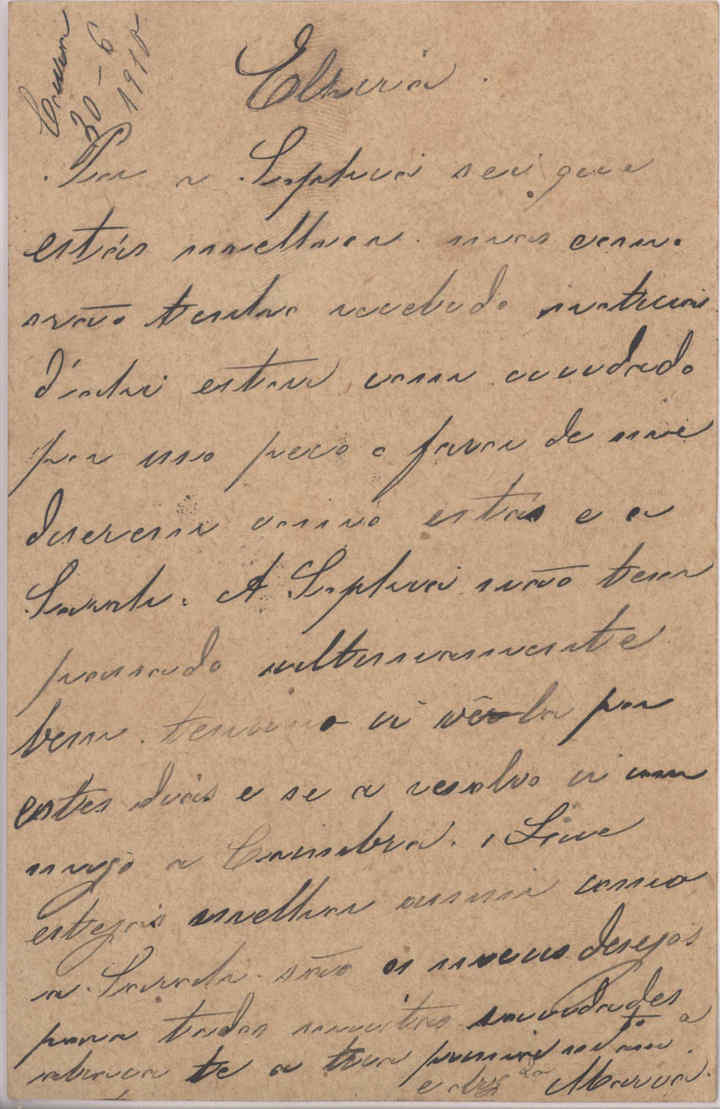 30-6
1910
Elzira
Por a Sophia sei que
estás melhor mas como
não tenho recebido noticias
d'ahi estou com cuidado
por isso peço o favor de me
dizerem como estás e a
Sarah. A Sophia não tem
passado ultimamente
bem tenciono ir vêr-la por
estes dias e se a resolvo ir com
migo a Coimbra. Que
estejas melhor assim como
a Sarah são os meus desejos
para todos muitas saudades
abraça te a tua prima m.to a
Maria